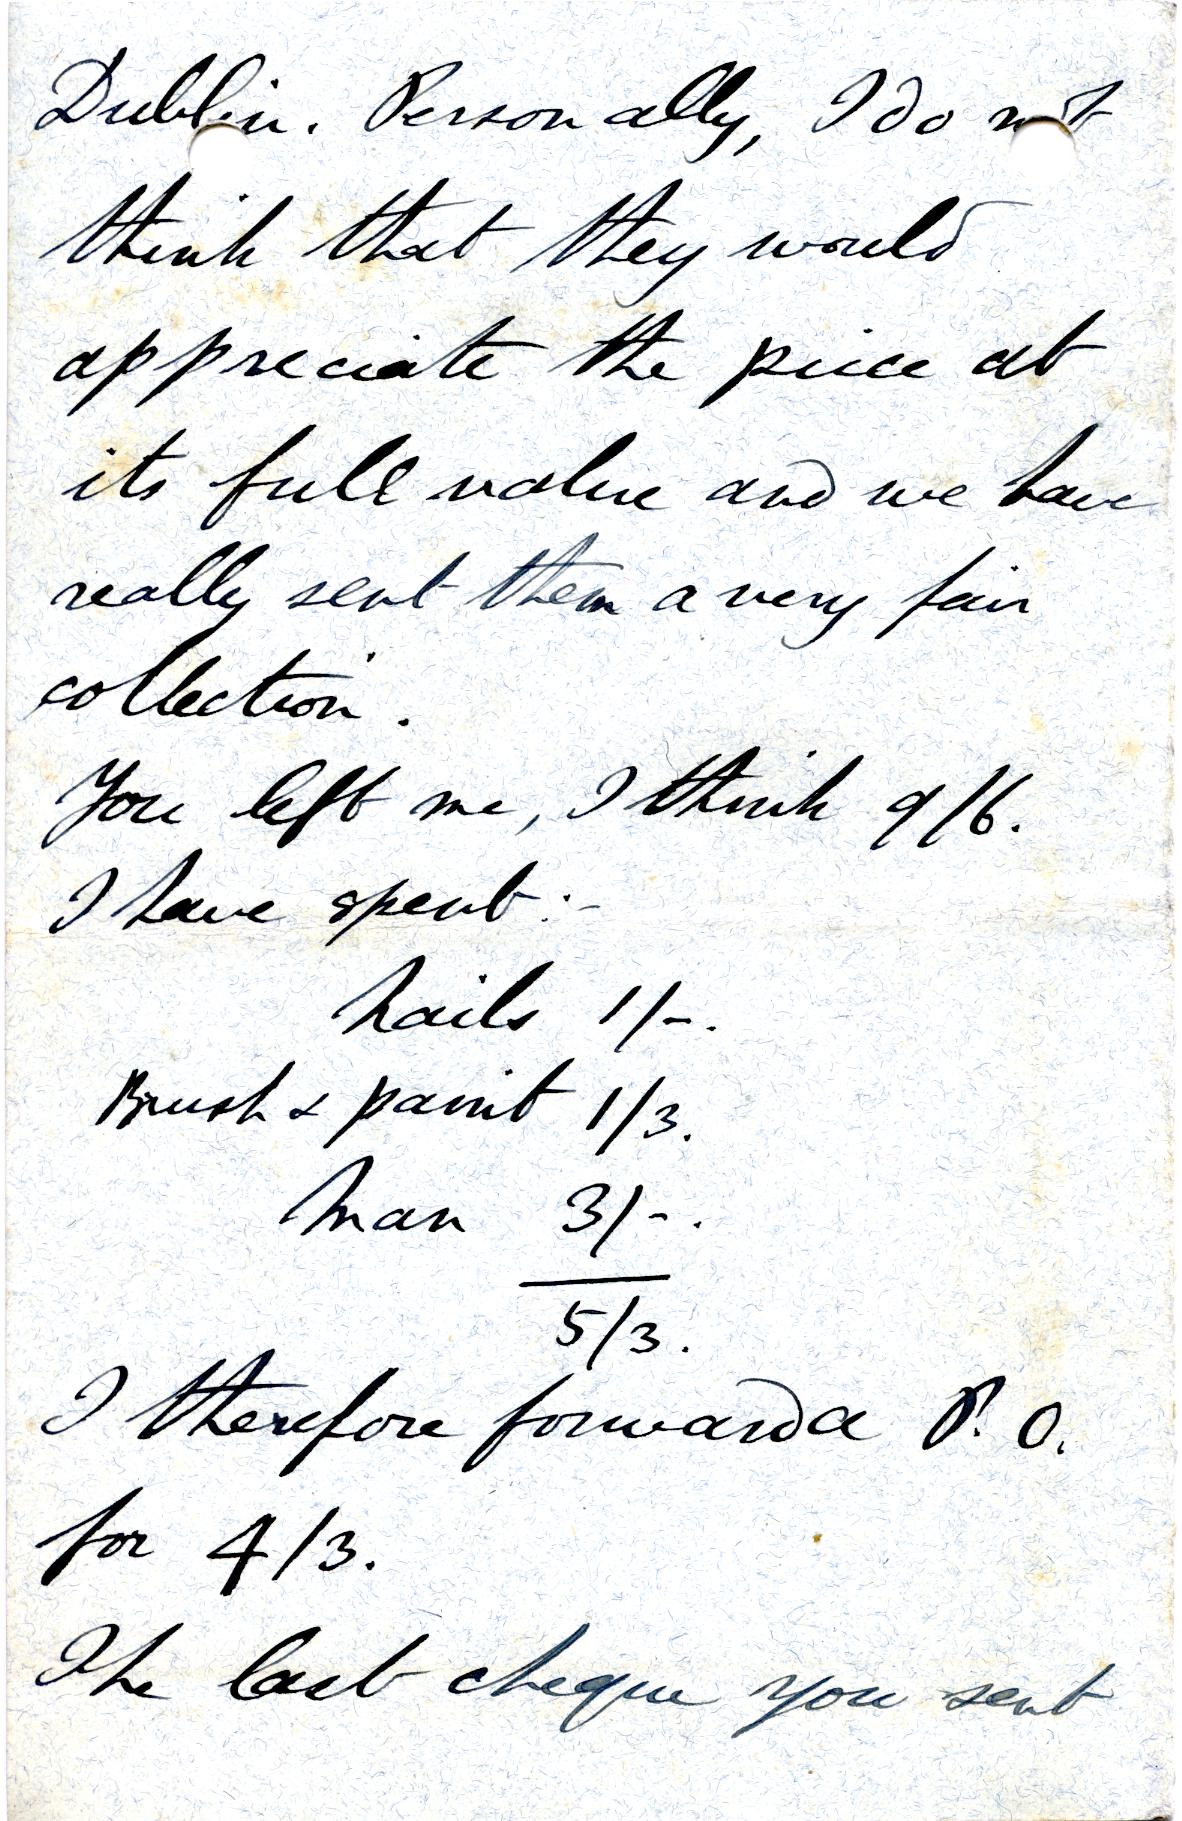 Dublin. Personally, I do not
think that they would
appreciate the piece at
its full value and we have
really sent them a very fair
collection.
You left me, I think 9/6.
I have spent :-
Nails 1/-.
Brush & paint 1/3.
Man 3/-.
5/3.
I therefore forward a P. O.
for 4/3.
The last cheque you sent